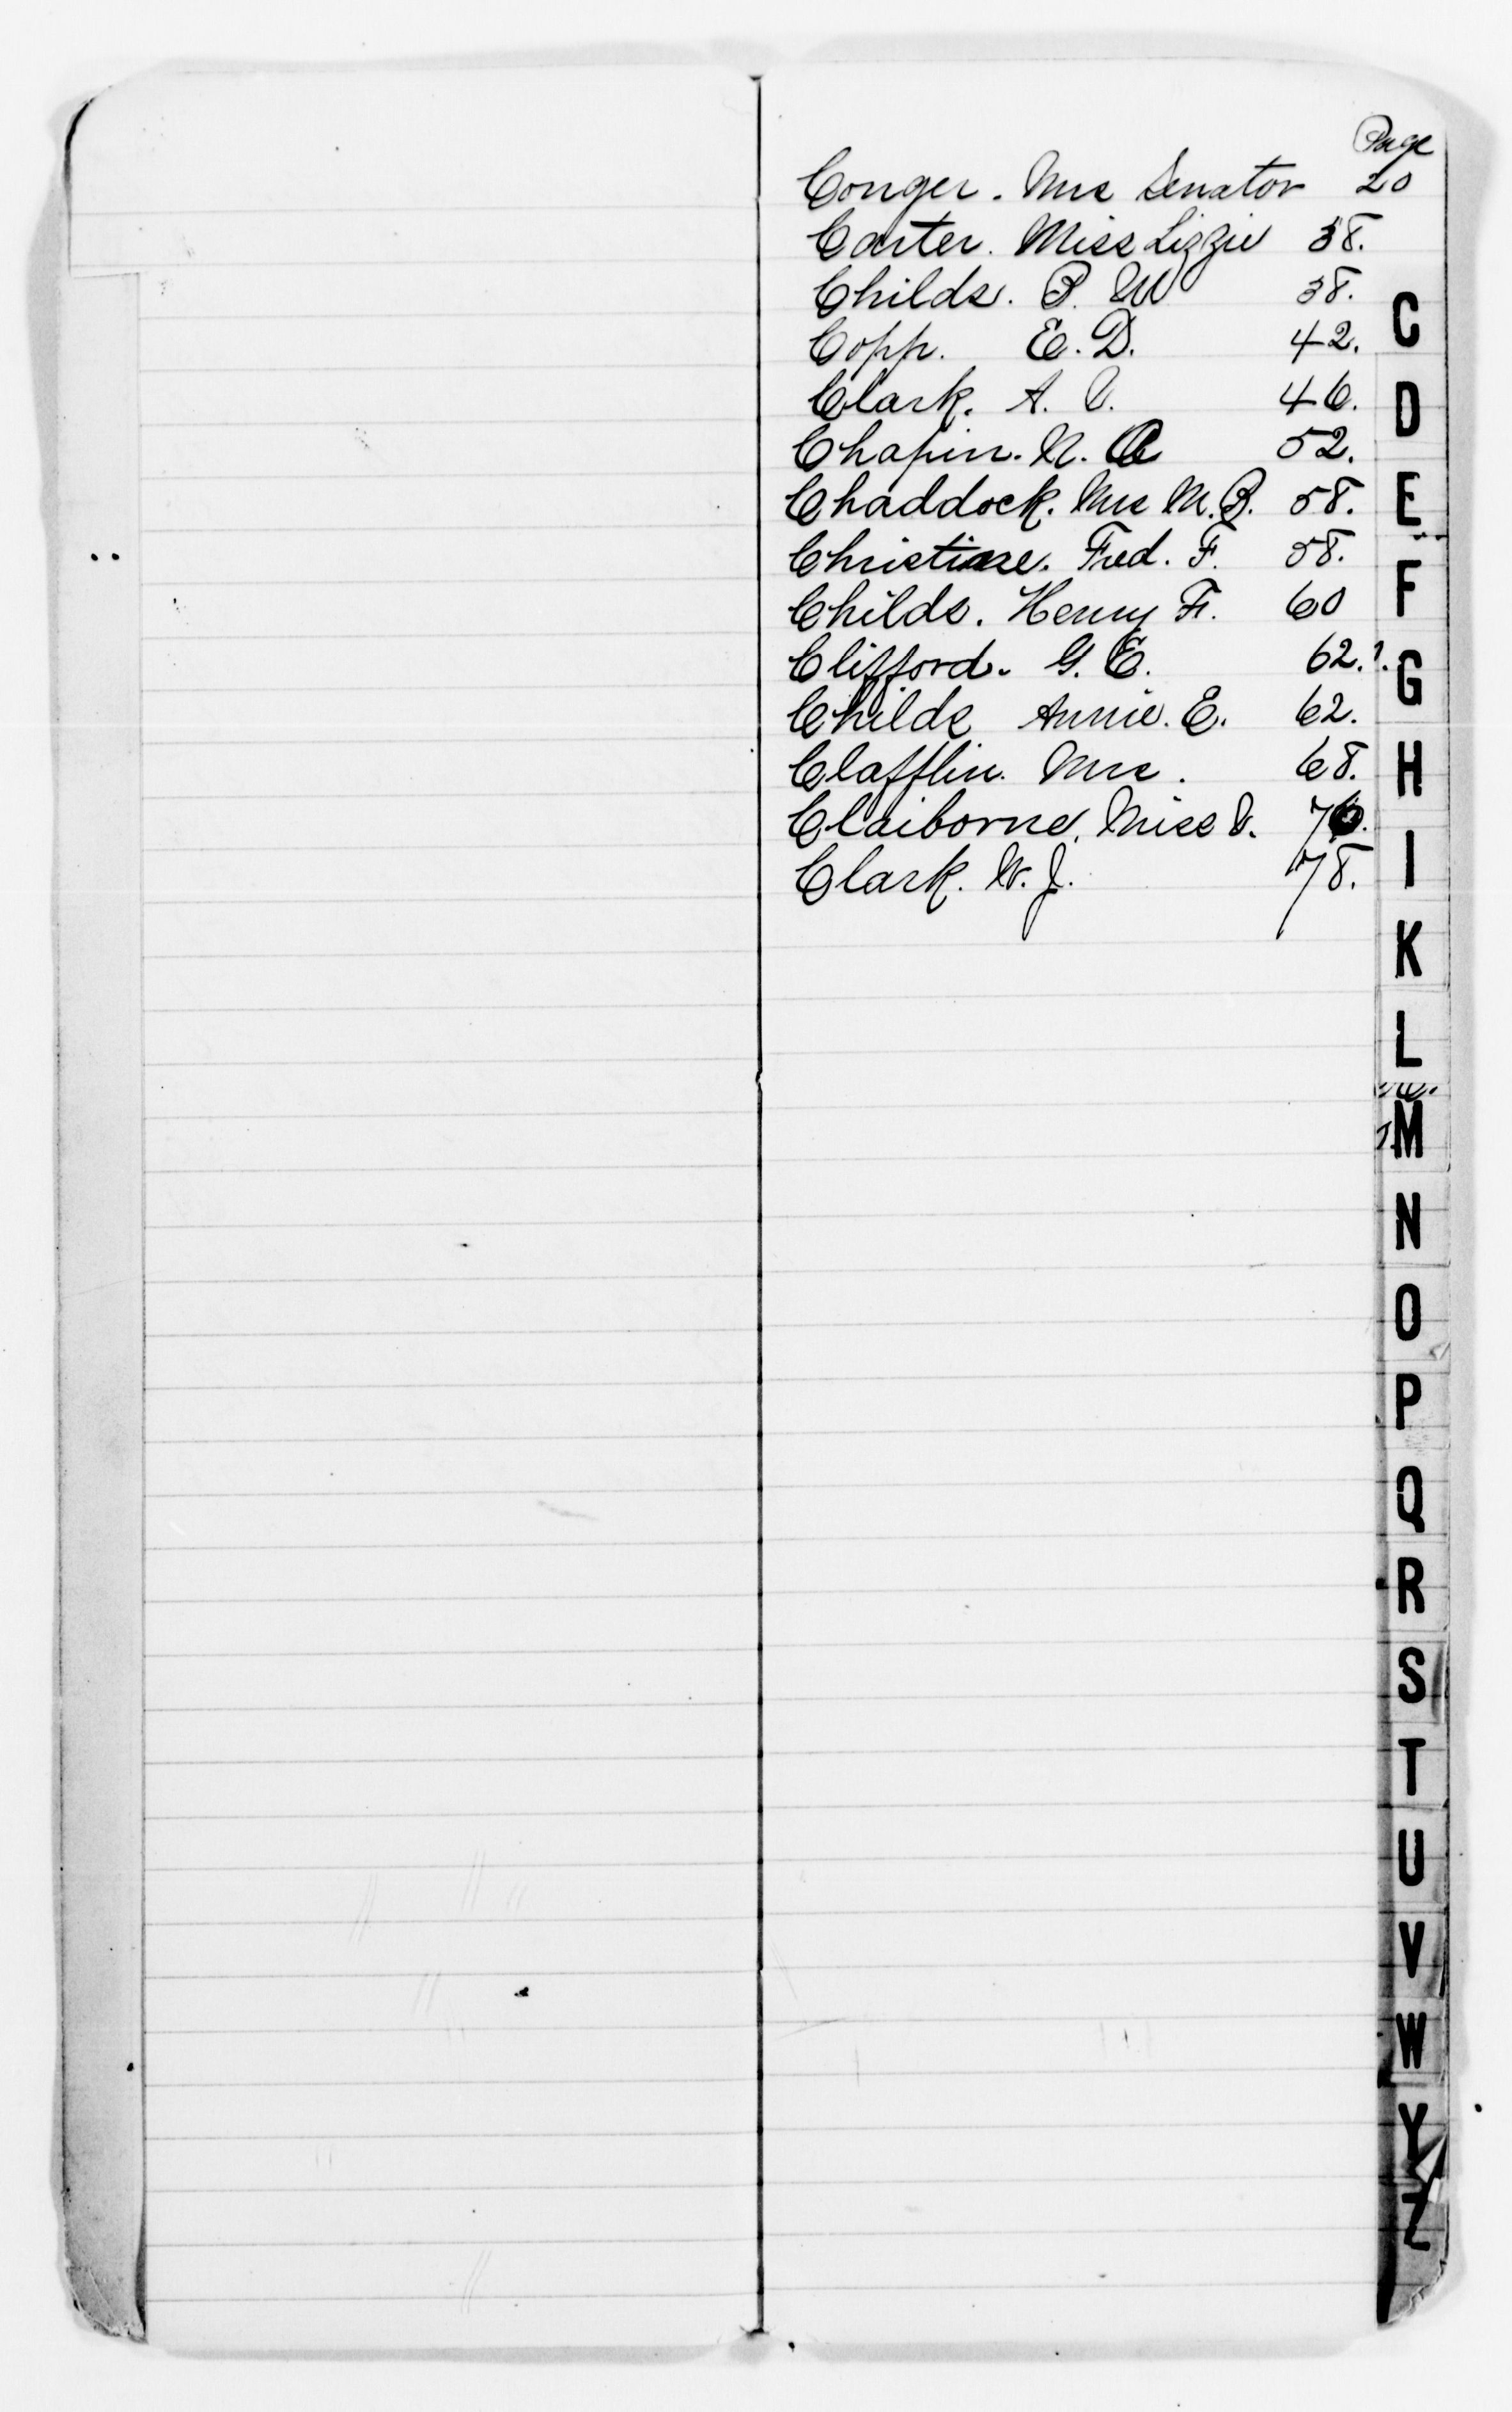 Page
Conger. Mrs Senator 20
Carter. Miss Lizzie 38.
Childs. B. W 38.
Copp. E. D. 42.
Clark. A. C. 46.
Chapin. N. C 52.
Chaddock. Mrs M. B. 58.
Christiase. Fred. F. 58.
Childs. Henry F. 60
Clifford. G. E. 62.
Childs Annie. E. 62.
Clafflin. Mrs. 68.
Claiborne, Miss V. 76.
Clark. W. J. 78.
C
D
E
F
G
H
I
K
L
M
N
O
P
Q
R
S
T
U
V
W
Y
Z